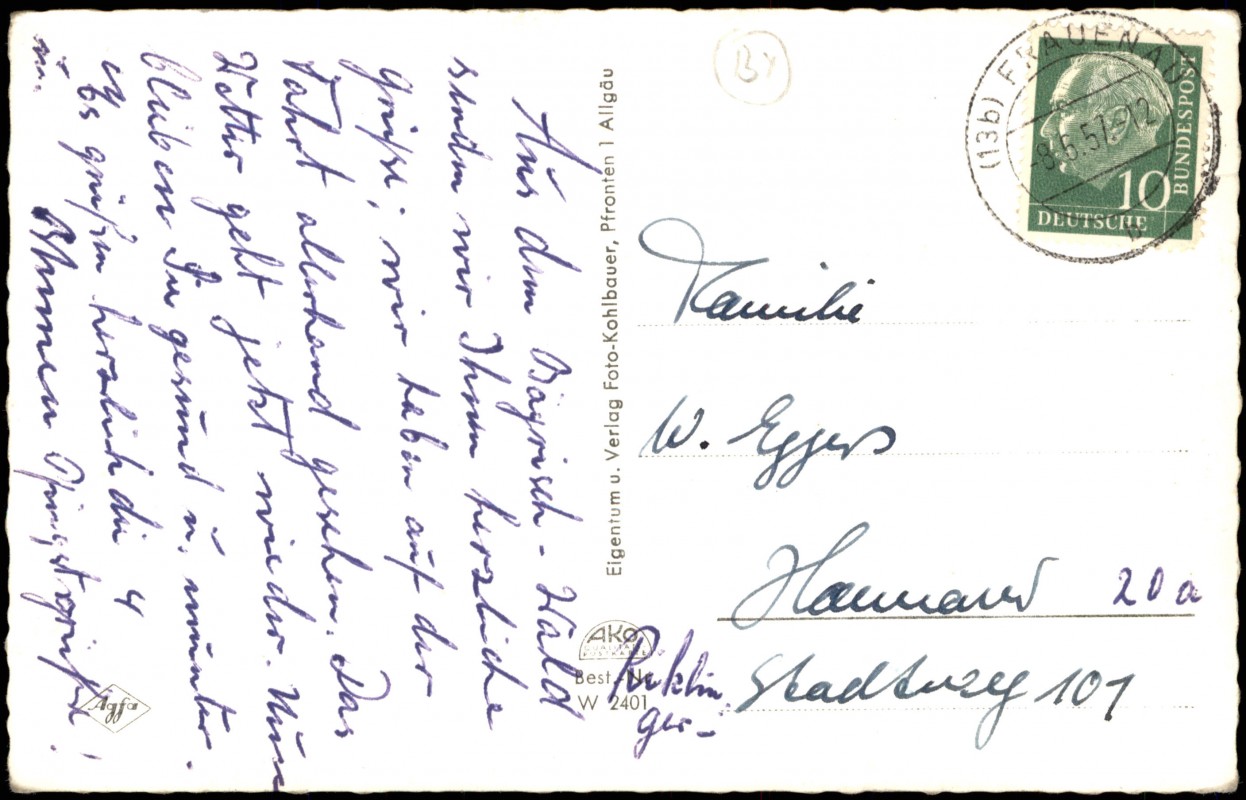 Aus dem Bayrisch-Wald
senden wir Ihnen herzliche
Grüße; wir haben auf der
Fahrt allerhand gesehen. Das
Wetter geht jetzt wieder. Nun
bleiben Sie gesund u. munter.
Es grüßen herzlich die 4
Ihnen Pfingstgrüße!
Eigentum u. Verlag Foto-Kohlbauer, Pfronten 1 Allgäu
AKO
Best.-Nr.
W 2401
Agfa
By
(13b) FRAUENAU
-8.6.57-12
b
10
DEUTSCHE
BUNDESPOST
Familie
W. Eggers
Hannover 20a
Ricklin
ger-
Stadtweg 101